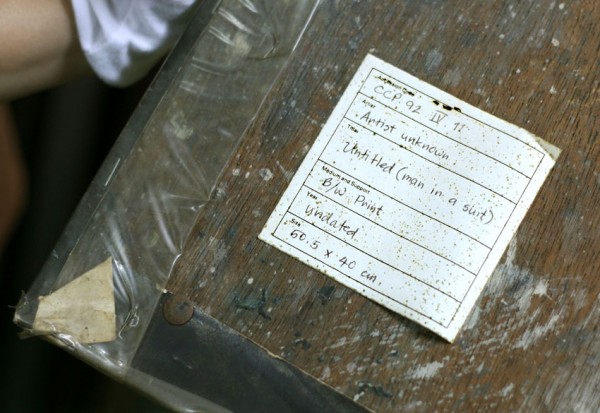 Accession Code
CCP. 92 IV 11
Artist
Artist unknown
Title
Untitled (man in a suit)
Medium and Support
B/W Print
Year
Undated
Size
50.5 x 40 cm.